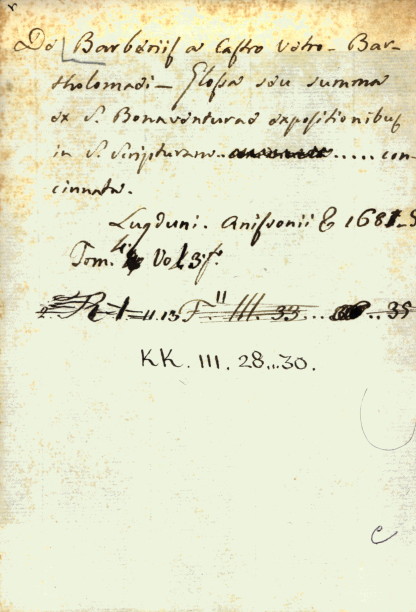 De Barberiis a Castro Vetro - Bar-
tholomaei - Glossa seu summa
ex S. Bonaventurae expositionibus
in S. Scripturam ..... con-
cinnata.
Lugduni. Anissonii & 1681-5
Tom. 4 Vol 3 f.º
KK. III. 28...30.